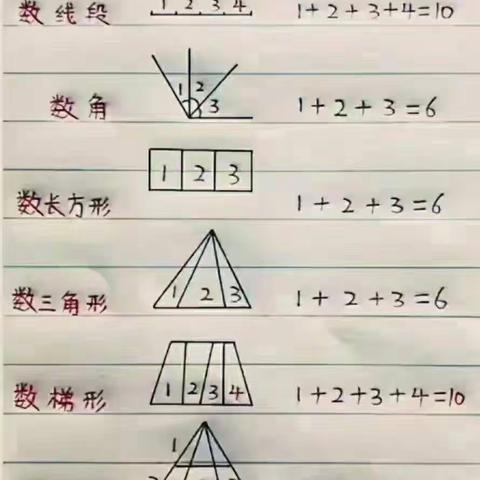 数线段 1 2 3 4 1+2+3+4=10
数角 1 2 3 1+2+3=6
数长方形 1 2 3 1+2+3=6
数三角形 1 2 3 1+2+3=6
数梯形 1 2 3 4 1+2+3+4=10
1